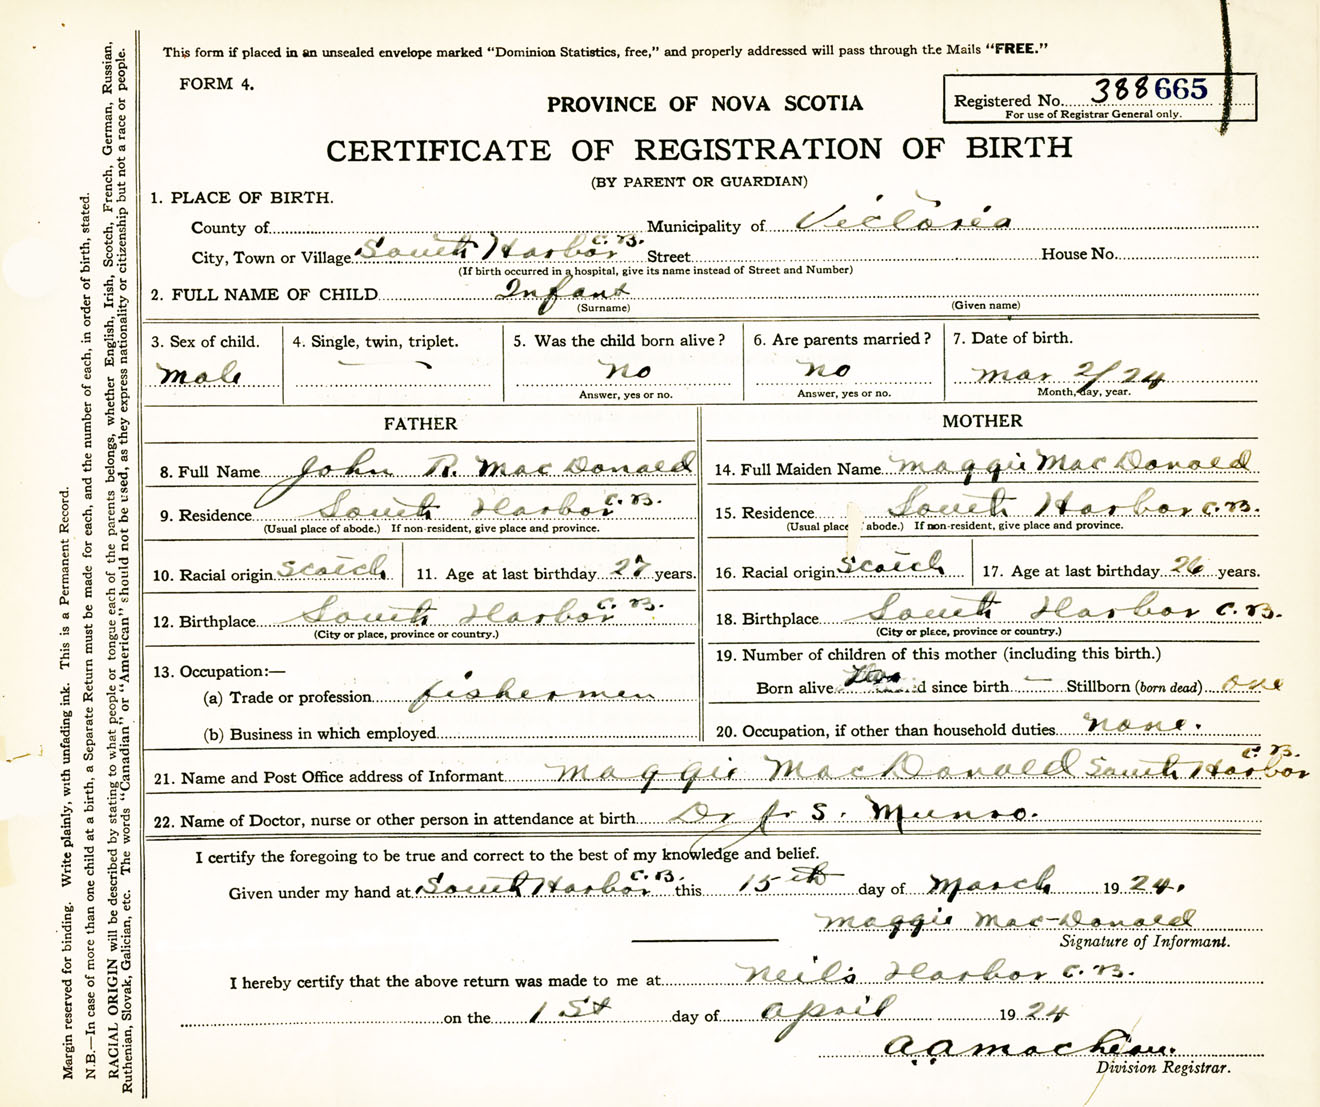 This form if placed in an unsealed envelope marked "Dominion Statistics, free," and properly addressed will pass through the Mails "FREE."
FORM 4.
Registered No. 388665
For use of Registrar General only.
PROVINCE OF NOVA SCOTIA
CERTIFICATE OF REGISTRATION OF BIRTH
(BY PARENT OR GUARDIAN)
1. PLACE OF BIRTH.
County of Municipality of Victoria
City, Town or Village South Harbor C.B. Street House No.
(If birth occurred in a hospital, give its name instead of Street and Number)
2. FULL NAME OF CHILD Infant
(Surname) (Given name)
3. Sex of child. 4. Single, twin, triplet. 5. Was the child born alive? 6. Are parents married? 7. Date of birth.
Male — — No No Mar 2/24
Answer, yes or no. Answer, yes or no. Month, day, year.
FATHER MOTHER
8. Full Name John R. MacDonald 14. Full Maiden Name Maggie MacDonald
9. Residence South Harbor C.B. 15. Residence South Harbor C.B.
(Usual place of abode.) If non-resident, give place and province. (Usual place abode.) If non-resident, give place and province.
10. Racial origin Scotch 11. Age at last birthday 27 years. 16. Racial origin Scotch 17. Age at last birthday 26 years.
12. Birthplace South Harbor C.B. 18. Birthplace South Harbor C.B.
(City or place, province or country.) (City or place, province or country.)
13. Occupation:— 19. Number of children of this mother (including this birth.)
(a) Trade or profession fishermen Born alive d since birth — Stillborn (born dead) one
(b) Business in which employed 20. Occupation, if other than household duties none.
21. Name and Post Office address of Informant Maggie MacDonald South Harbor C.B.
22. Name of Doctor, nurse or other person in attendance at birth Dr S. Munro.
I certify the foregoing to be true and correct to the best of my knowledge and belief.
Given under my hand at South Harbor C.B. this 15th day of March 1924.
Maggie Mac-Donald
Signature of Informant.
I hereby certify that the above return was made to me at Neil's Harbor C.B.
on the 1st day of April 1924
Division Registrar.
Margin reserved for binding. Write plainly, with unfading ink. This is a Permanent Record.
N.B.—In case of more than one child at a birth, a Separate Return must be made for each, and the number of each, in order of birth, stated.
RACIAL ORIGIN will be described by stating to what people or tongue each of the parents belongs, whether English, Irish, Scotch, French, German, Russian,
Ruthenian, Slovak, Galician, etc. The words "Canadian" or "American" should not be used, as they express nationality or citizenship but not a race or people.